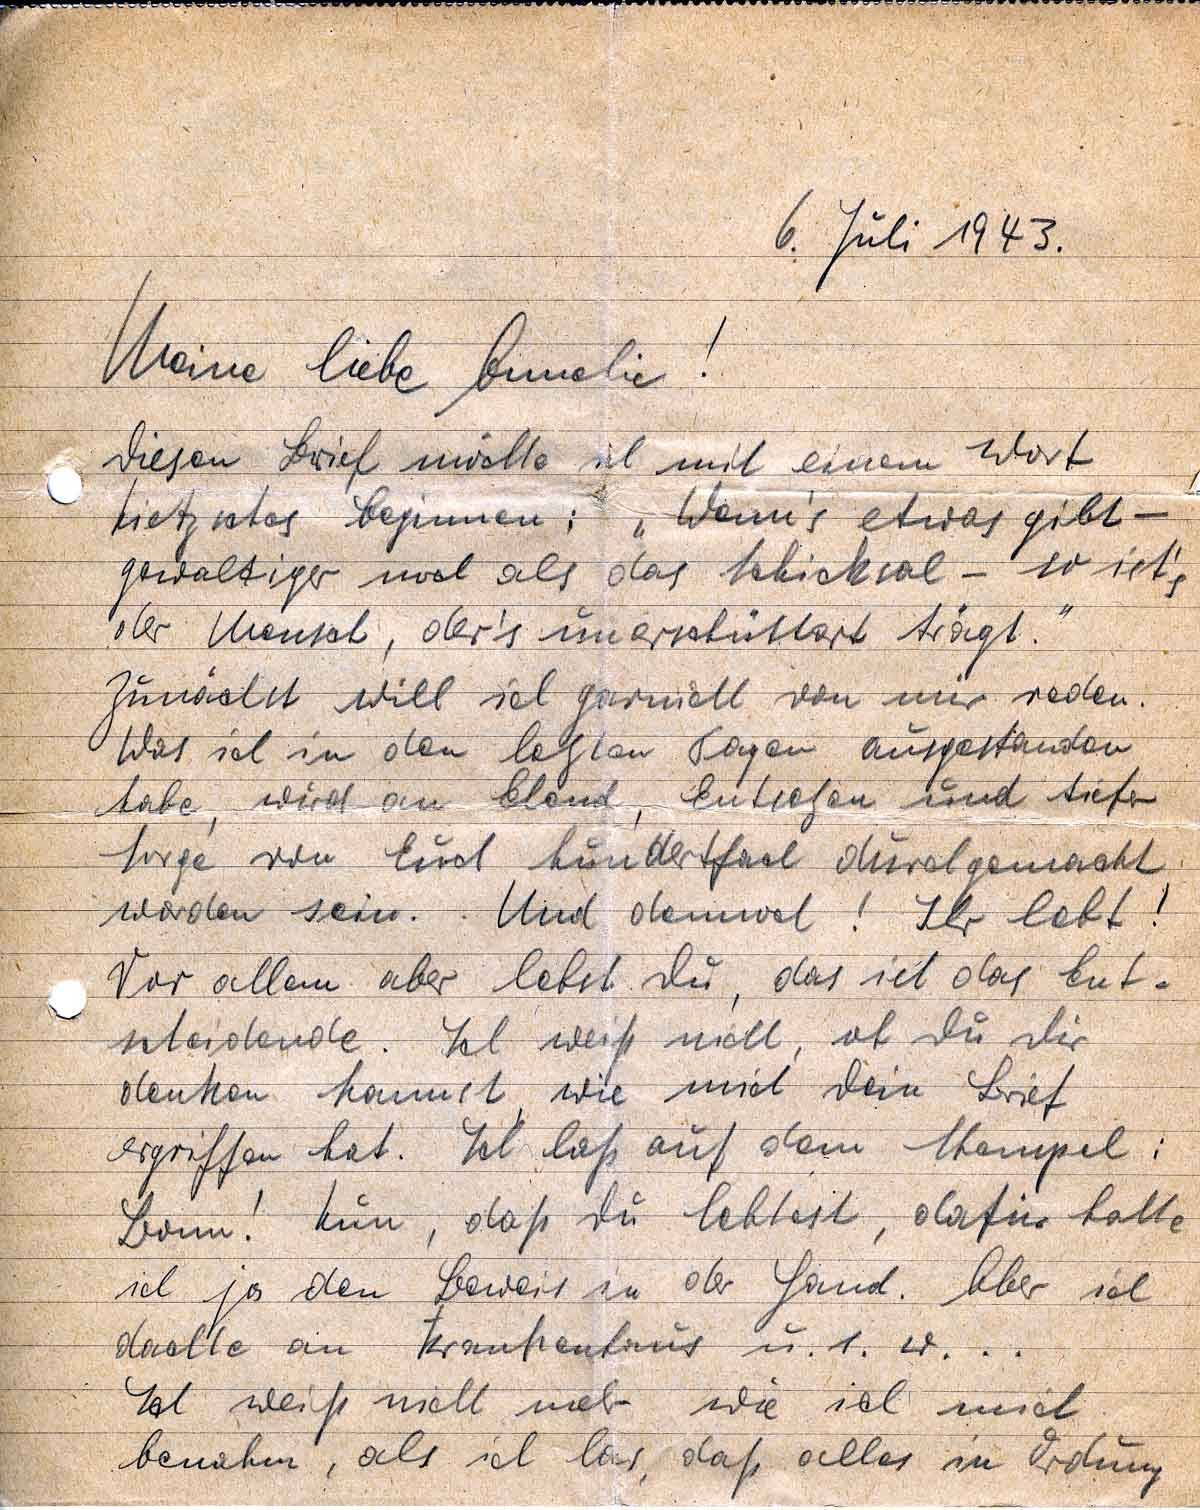 6. Juli 1943.
Meine liebe Annelie!
Diesen Brief möchte ich mit einem Wort
Nietzsches beginnen: „Wenn's etwas gibt –
gewaltiger noch als das Schicksal – so ist's
der Mensch, der's unerschüttert trägt."
Zunächst will ich garnicht von mir reden.
Was ich in den letzten Tagen ausgestanden
habe, wird an Elend, Entsetzen und tiefer
Sorge von Euch hundertfach durchgemacht
worden sein. Und dennoch! Ihr lebt!
Vor allem aber lebst Du, das ist das Ent-
scheidende. Ich weiß nicht, ob Du Dir
denken kannst, wie mich Dein Brief
ergriffen hat. Ich laß auf dem Stempel:
Bonn! Nun, daß Du lebtest, dafür hatte
ich ja den Beweis in der Hand. Aber ich
dachte an Krankenhaus u. s. w. . .
Ich weiß nicht mehr wie ich mich
benahm, als ich las, daß alles in Ordung